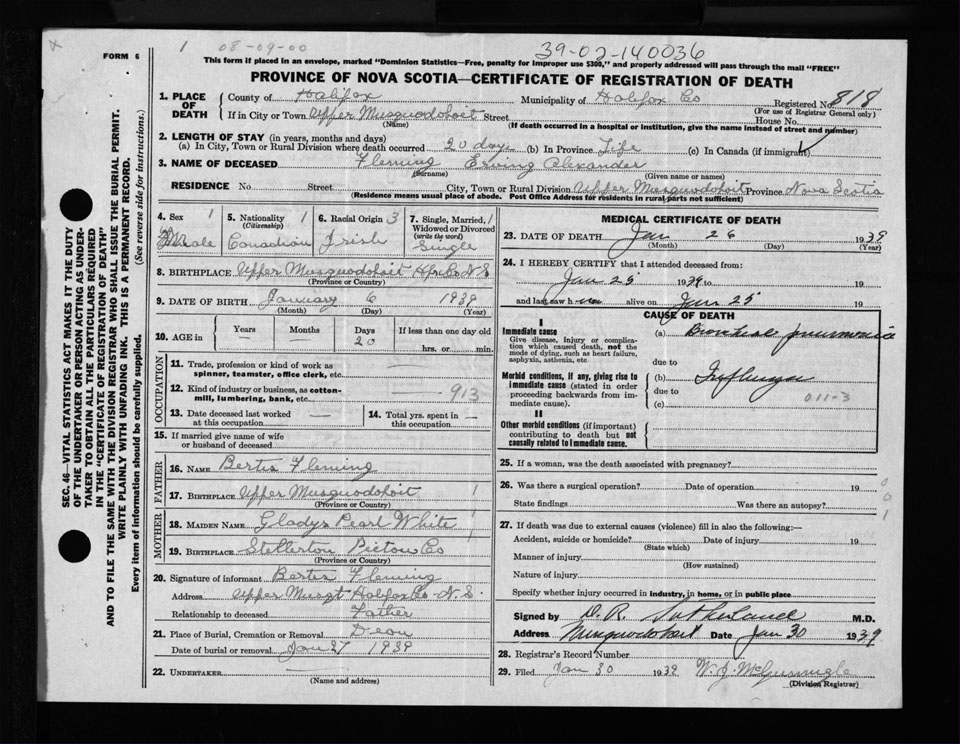 1 08-09-00 39-02-140036
FORM 6
This form if placed in an envelope, marked "Dominion Statistics—Free, penalty for improper use $300," and properly addressed will pass through the mail "FREE"
PROVINCE OF NOVA SCOTIA—CERTIFICATE OF REGISTRATION OF DEATH
SEC. 46—VITAL STATISTICS ACT MAKES IT THE DUTY
OF THE UNDERTAKER OR PERSON ACTING AS UNDER-
TAKER TO OBTAIN ALL THE PARTICULARS REQUIRED
IN THE "CERTIFICATE OF REGISTRATION OF DEATH"
AND TO FILE THE SAME WITH THE DIVISION REGISTRAR WHO SHALL ISSUE THE BURIAL PERMIT.
WRITE PLAINLY WITH UNFADING INK. THIS IS A PERMANENT RECORD.
Every item of information should be carefully supplied. (See reverse side for instructions.)
1. PLACE OF DEATH
County of Halifax Municipality of Halifax Co Registered No. 818
(For use of Registrar General only)
If in City or Town Upper Musquodoboit Street House No.
(Name) (If death occurred in a hospital or institution, give the name instead of street and number)
2. LENGTH OF STAY (in years, months and days)
(a) In City, Town or Rural Division where death occurred 20 days (b) In Province Life (c) In Canada (if immigrant)
3. NAME OF DECEASED Fleming Erving Alexander
(Surname) (Given name or names)
RESIDENCE No. Street City, Town or Rural Division Upper Musquodoboit Province Nova Scotia
(Residence means usual place of abode. Post Office Address for residents in rural parts not sufficient)
4. Sex 1 Male
5. Nationality 1 Canadian
6. Racial Origin 3 Irish
7. Single, Married, Widowed or Divorced (write the word) 1 Single
8. BIRTHPLACE Upper Musquodoboit Hfx Co N.S
(Province or Country)
9. DATE OF BIRTH January 6 1939
(Month) (Day) (Year)
10. AGE in Years — Months — Days 20 If less than one day old hrs. or min.
OCCUPATION
11. Trade, profession or kind of work as spinner, teamster, office clerk, etc. —
12. Kind of industry or business, as cotton-mill, lumbering, bank, etc. — 913
13. Date deceased last worked at this occupation — 14. Total yrs. spent in this occupation —
15. If married give name of wife or husband of deceased
FATHER
16. NAME Bertis Fleming
17. BIRTHPLACE Upper Musquodoboit 1
MOTHER
18. MAIDEN NAME Gladys Pearl White
19. BIRTHPLACE Stellerton Pictou Co 1
(Province or Country)
20. Signature of informant Bertis Fleming
Address Upper Musqt Halifax Co N.S.
Relationship to deceased Father
21. Place of Burial, Cremation or Removal Dean
Date of burial or removal Jan 27 1939
22. UNDERTAKER
(Name and address)
MEDICAL CERTIFICATE OF DEATH
23. DATE OF DEATH Jan 26 1939
(Month) (Day) (Year)
24. I HEREBY CERTIFY that I attended deceased from:
Jan 25 1939 to 19
and last saw h im alive on Jan 25 19
CAUSE OF DEATH
I
Immediate cause (a) Bronchial pneumonia
Give disease, injury or complication which caused death, not the mode of dying, such as heart failure, asphyxia, asthenia, etc.
due to
Morbid conditions, if any, giving rise to immediate cause (stated in order proceeding backwards from immediate cause).
(b) Influenza
due to 011-3
(c)
II
Other morbid conditions (if important) contributing to death but not causally related to immediate cause.
25. If a woman, was the death associated with pregnancy?
26. Was there a surgical operation? Date of operation 19 0
State findings Was there an autopsy? 0 1
27. If death was due to external causes (violence) fill in also the following:—
Accident, suicide or homicide? Date of injury 19
(State which)
Manner of injury
(How sustained)
Nature of injury
Specify whether injury occurred in industry, in home, or in public place
Signed by D. R. Sutherland M.D.
Address Musquodoboit Date Jan 30 1939
28. Registrar's Record Number
29. Filed Jan 30 1939 W. J.
(Division Registrar)